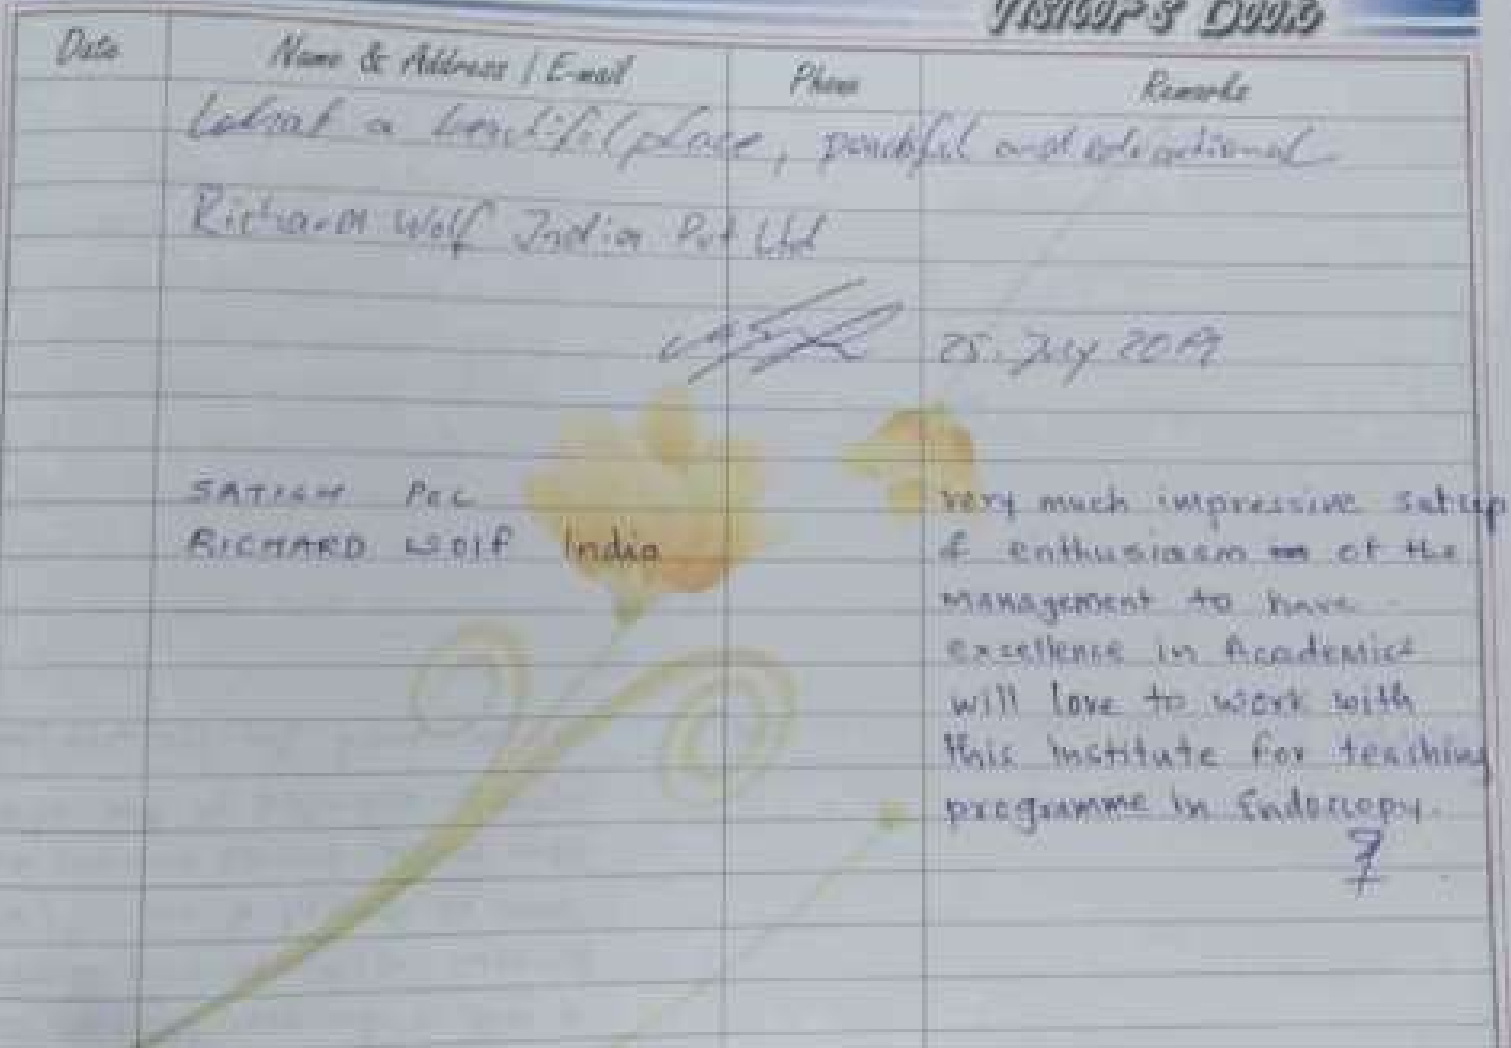 Visitor's Book
Date Name & Address / E-mail Phone Remarks
What a beautiful place, peaceful and educational
Richard Wolf India Pvt Ltd
25. July 2019
SATISH
RICHARD Wolf India
very much impressive setup
& enthusiasm of the
management to have
excellence in Academics
will love to work with
this institute for teaching
programme in Endoscopy.